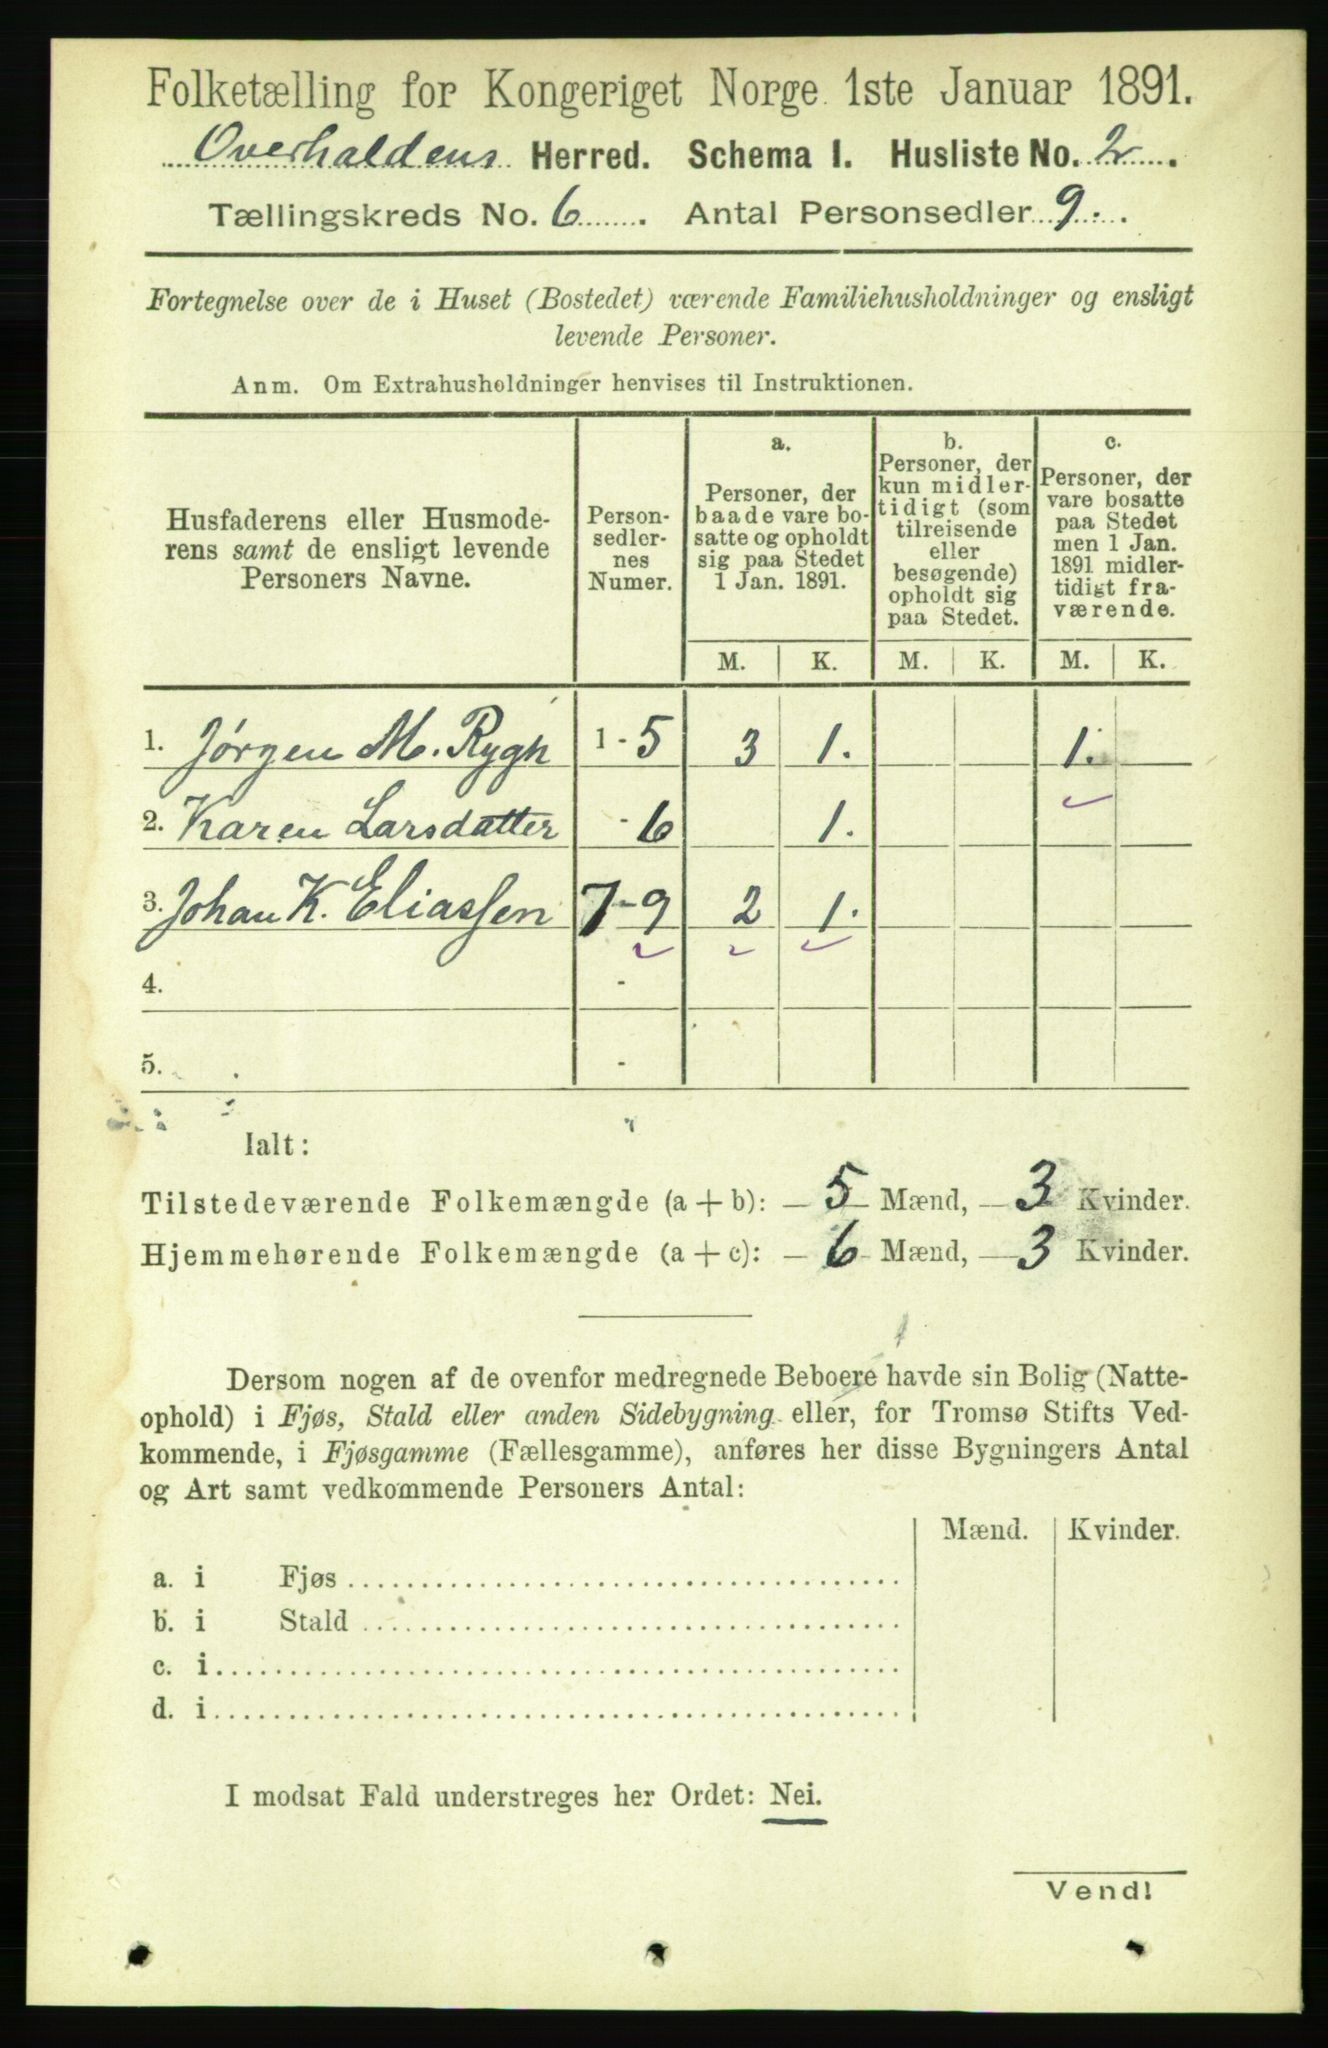 Folketælling for Kongeriget Norge 1ste Januar 1891.
Overhaldens Herred. Schema I. Husliste No. 2.
Tællingskreds No. 6. Antal Personsedler 9.
Fortegnelse over de i Huset (Bostedet) værende Familiehusholdninger og ensligt
levende Personer.
Anm. Om Extrahusholdninger henvises til Instruktionen.
Husfaderens eller Husmode-
rens samt de ensligt levende
Personers Navne.
Person-
sedler-
nes
Numer.
a.
Personer, der
baade vare bo-
satte og opholdt
sig paa Stedet
1 Jan. 1891.
b.
Personer, der
kun midler-
tidigt (som
tilreisende
eller
besøgende)
opholdt sig
paa Stedet.
c.
Personer, der
vare bosatte
paa Stedet
men 1 Jan.
1891 midler-
tidigt fra-
værende.
M. K. M. K. M. K.
1. Jørgen M. Rygh 1-5 3 1. 1.
2. Karen Larsdatter -6 1.
3. Johan K. Eliassen 7-9 2 1.
4. -
5. -
Ialt:
Tilstedeværende Folkemængde (a + b): 5 Mænd, 3 Kvinder.
Hjemmehørende Folkemængde (a + c): 6 Mænd, 3 Kvinder.
Dersom nogen af de ovenfor medregnede Beboere havde sin Bolig (Natte-
ophold) i Fjøs, Stald eller anden Sidebygning eller, for Tromsø Stifts Ved-
kommende, i Fjøsgamme (Fællesgamme), anføres her disse Bygningers Antal
og Art samt vedkommende Personers Antal:
Mænd. Kvinder.
a. i Fjøs
b. i Stald
c. i
d. i
I modsat Fald understreges her Ordet: Nei.
Vend!